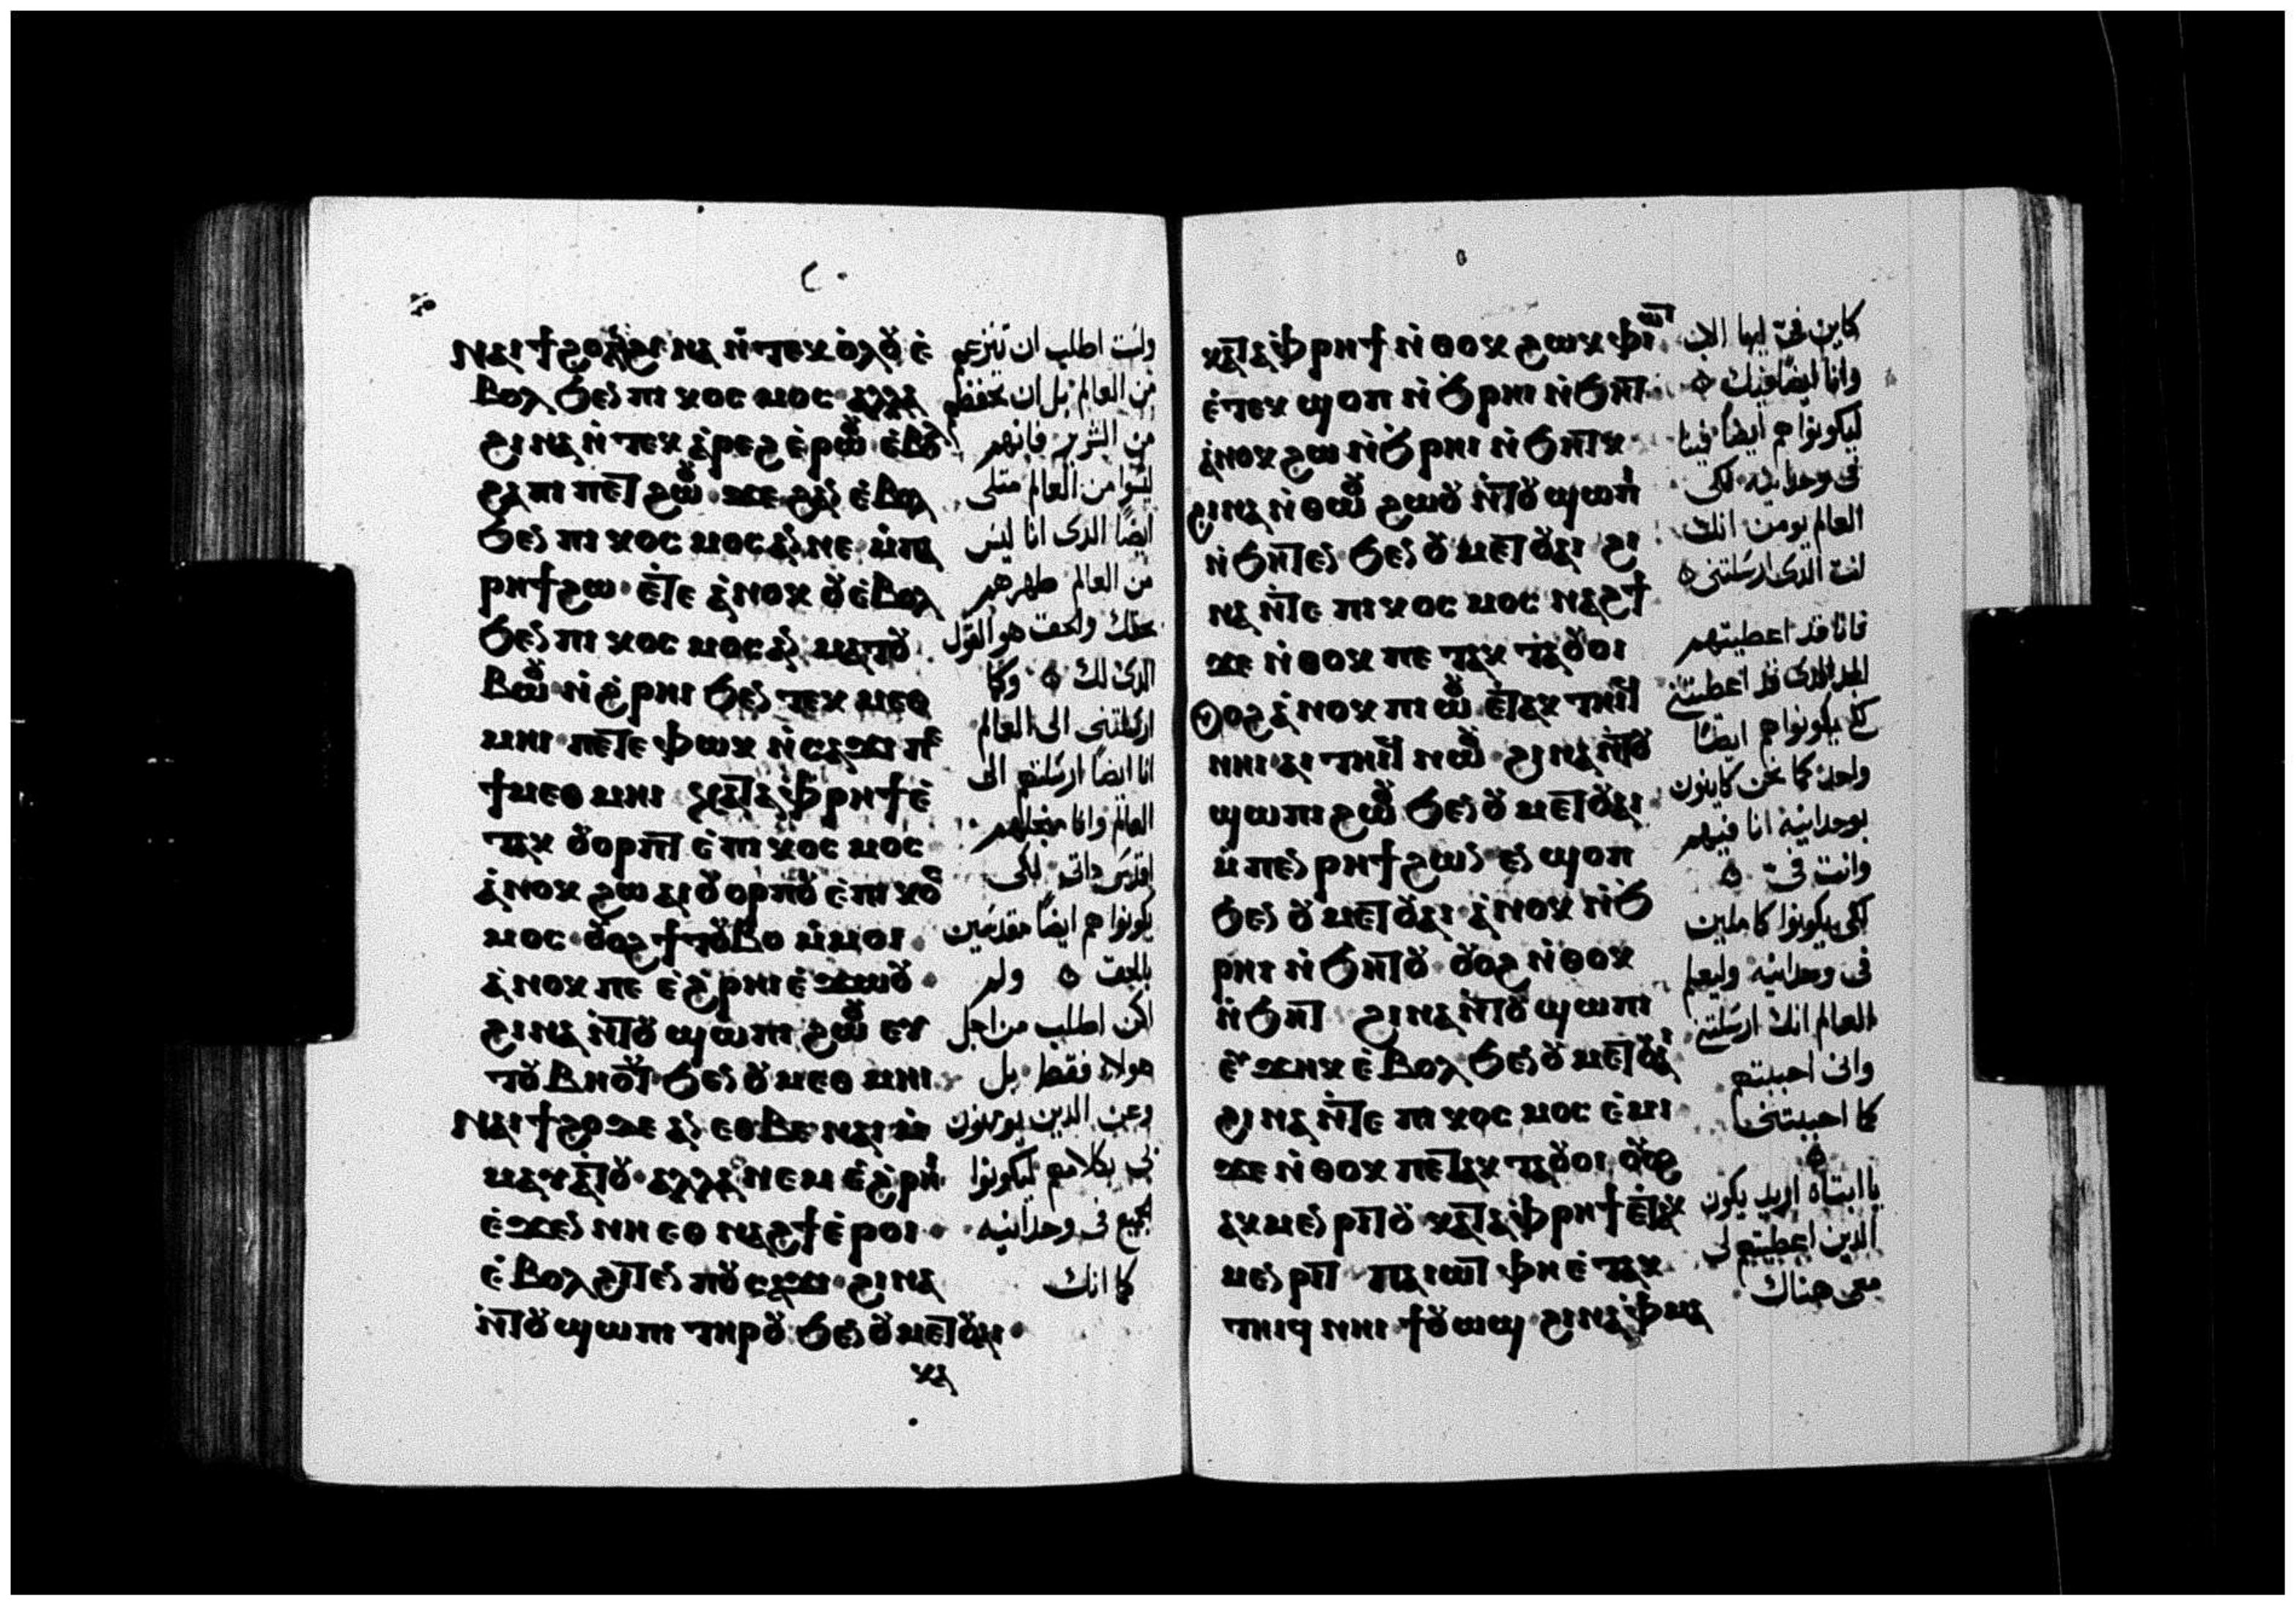 ⲛⲁⲓϯϩⲟ ⲁⲛ ϩⲓⲛⲁ ⲛ̀ⲧⲉⲕⲟ̀ⲗⲟⲩ ⲉ̀
ⲃⲟⲗ ϧⲉⲛ ⲡⲓⲕⲟⲥⲙⲟⲥ ⲁⲗⲗⲁ
ϩⲓⲛⲁ ⲛ̀ⲧⲉⲕⲁ̀ⲣⲉϩ ⲉ̀ⲣⲱⲟⲩ ⲉ̀ⲃⲟⲗ
ϩⲁ ⲡⲓⲡⲉⲧϩⲱⲟⲩ ϫⲉ ϩⲁⲛ ⲉ̀ⲃⲟⲗ
ϧⲉⲛ ⲡⲓⲕⲟⲥⲙⲟⲥ ⲁⲛ ⲛⲉ ⲙ̀ⲡⲁ
ⲣⲏϯ ϩⲱ ⲉ̀ⲧⲉ ⲁ̀ⲛⲟⲕ ⲟⲩⲉ̀ⲃⲟⲗ
ϧⲉⲛ ⲡⲓⲕⲟⲥⲙⲟⲥ ⲁⲛ ⲙⲁⲧⲟⲩ
ⲃⲱⲟⲩ ⲛ̀ϩ̀ⲣⲏⲓ ϧⲉⲛ ⲧⲉⲕⲙⲉⲑ
ⲙⲏⲓ ⲡⲉⲧⲉ ⲫⲱⲕ ⲛ̀ⲥⲁϫⲓ ⲡⲉ
ϯⲙⲉⲑⲙⲏⲓ ⲕⲁⲧⲁ ⲫ̀ⲣⲏϯ ⲉ̀
ⲧⲁⲕ ⲟⲩⲟⲣⲡⲧ ⲉ̀ⲡⲓⲕⲟⲥⲙⲟⲥ
ⲁ̀ⲛⲟⲕ ϩⲱ ⲁⲓⲟⲩⲟⲣⲡⲟⲩ ⲉ̀ⲡⲓⲕⲟⲥ
ⲙⲟⲥ ⲟⲩⲟϩ ϯⲧⲟⲩⲃⲟ ⲙ̀ⲙⲟⲓ
ⲁ̀ⲛⲟⲕ ⲡⲉ ⲉ̀ϩ̀ⲣⲏⲓ ⲉ̀ϫⲱⲟⲩ
ϩⲓⲛⲁ ⲛ̀ⲧⲟⲩϣⲱⲡⲓ ϩⲱⲟⲩ ⲉⲩ
ⲧⲟⲩⲃⲏⲟⲩⲧ ϧⲉⲛ ⲟⲩⲙⲉⲑⲙⲏⲓ
ⲛⲁⲓϯϩⲟ ϫⲉ ⲁⲛ ⲉⲑⲃⲉ ⲛⲁⲓ ⲙ̀
ⲙⲁⲩⲁ̀ⲧⲟⲩ ⲁⲗⲗⲁ ⲛⲉⲙ ⲉ̀ϩ̀ⲣⲏⲓ
ⲉ̀ϫⲉⲛ ⲛⲏ ⲉⲑⲛⲁϩϯ ⲉ̀ⲣⲟⲓ
ⲉ̀ⲃⲟⲗ ϩⲓⲧⲉⲛ ⲡⲟⲩⲥⲁϫⲓ ϩⲓⲛⲁ
ⲛ̀ⲧⲟⲩϣⲱⲡⲓ ⲧⲏⲣⲟⲩ ϧⲉⲛ ⲟⲩⲙⲉⲧⲟⲩⲁⲓ
ⲕⲁ
٢٠
ولست اطلب ان تنزعهم
من العالم بل ان تحفظهم
من الشرير فانهم
ليسوا من العالم مثلى
ايضا الذى انا ليس
من العالم طهرهم
بحقك والحق هو القول
الذى لك وكما
ارسلتنى الى العالم
انا ايضا ارسلتهم الى
العالم وانا من اجلهم
اقدس ذاتى لكى
يكونوا هم ايضا مقدسين
بالحق ولم
اكن اطلب من اجل
هولاء فقط بل
وعن الذين يومنون
بى بكلامهم ليكونوا
الجميع فى وحدانيه
كما انك
ⲕⲁⲧⲁ ⲫ̀ⲣⲏϯ ⲛ̀ⲑⲟⲕ ϩⲱⲕ ⲫ̀ⲓⲱⲧ
ⲉ̀ⲧⲉⲕϣⲟⲡ ⲛ̀ϧ̀ⲣⲏⲓ ⲛ̀ϧⲏⲧ
ⲁ̀ⲛⲟⲕ ϩⲱ ⲛ̀ϧ̀ⲣⲏⲓ ⲛ̀ϧⲏⲧⲕ
ϩⲓⲛⲁ ⲛ̀ⲑⲱⲟⲩ ϩⲱⲟⲩ ⲛ̀ⲧⲟⲩϣⲱⲡⲓ
ⲛ̀ϧⲏⲧⲉⲛ ϧⲉⲛ ⲟⲩⲙⲉⲧⲟⲩⲁⲓ ϩⲓ
ⲛⲁ ⲛ̀ⲧⲉ ⲡⲓⲕⲟⲥⲙⲟⲥ ⲛⲁϩϯ
ϫⲉ ⲛ̀ⲑⲟⲕ ⲡⲉ ⲧⲁⲕⲧⲁⲟⲩⲟⲓ
ⲟⲩⲟϩ ⲁ̀ⲛⲟⲕ ⲡⲓⲱⲟⲩ ⲉ̀ⲧⲁⲕ ⲧⲏⲓϥ
ⲛⲏⲓ ⲁⲓ ⲧⲏⲓϥ ⲛⲱⲟⲩ ϩⲓⲛⲁ ⲛ̀ⲧⲟⲩ
ϣⲱⲡⲓ ϩⲱⲟⲩ ϧⲉⲛ ⲟⲩⲙⲉⲧⲟⲩⲁⲓ
ⲙ̀ⲡⲉⲛⲣⲏϯ ϩⲱⲛ ⲉⲛϣⲟⲡ
ϧⲉⲛ ⲟⲩⲙⲉⲧⲟⲩⲁⲓ ⲁ̀ⲛⲟⲕ ⲛ̀ϧ
ⲣⲏⲓ ⲛ̀ϧⲏⲧⲟⲩ ⲟⲩⲟϩ ⲛ̀ⲑⲟⲕ
ⲛ̀ϧⲏⲧ ϩⲓⲛⲁ ⲛ̀ⲧⲟⲩϣⲱⲡⲓ
ⲉⲩϫⲏⲕ ⲉ̀ⲃⲟⲗ ϧⲉⲛ ⲟⲩⲙⲉⲧⲟⲩⲁⲓ
ϩⲓⲛⲁ ⲛ̀ⲧⲉ ⲡⲓⲕⲟⲥⲙⲟⲥ ⲉ̀ⲙⲓ
ϫⲉ ⲛ̀ⲑⲟⲕ ⲡⲉⲧⲁⲕ ⲧⲁⲟⲩⲟⲓ ⲟⲩⲟϩ
ⲁⲕⲙⲉⲛⲣⲓⲧⲟⲩ ⲕⲁⲧⲁ ⲫ̀ⲣⲏϯ ⲉ̀ⲧⲁⲕ
ⲙⲉⲛⲣⲓⲧ ⲡⲁⲓⲱⲧ ⲫⲏ ⲉ̀ⲧⲁⲕ
ⲧⲏⲓϥ ⲛⲏⲓ ϯⲟⲩⲱϣ ϩⲓⲛⲁ ⲫ̀ⲙⲁ
كاين فىّ ايها الاب
وانا ايضا فيك
ليكونوا هم ايضا فينا
فى وحدانيه لكى
العالم يومن انك
انت الذى ارسلتنى
فانا قد اعطيتهم
المجد الذى قد اعطيتنى
لكى يكونوا هم ايضا
واحد كما نحن كاينون
بوحدانيه انا فيهم
وانت فىّ
لكى يكونوا كاملين
فى وحدانيه وليعلم
العالم انك ارسلتنى
وانى احببتهم
كما احببتنى
يا ابتاه اريد يكون
الذين اعطيتهم لى
معى هناك